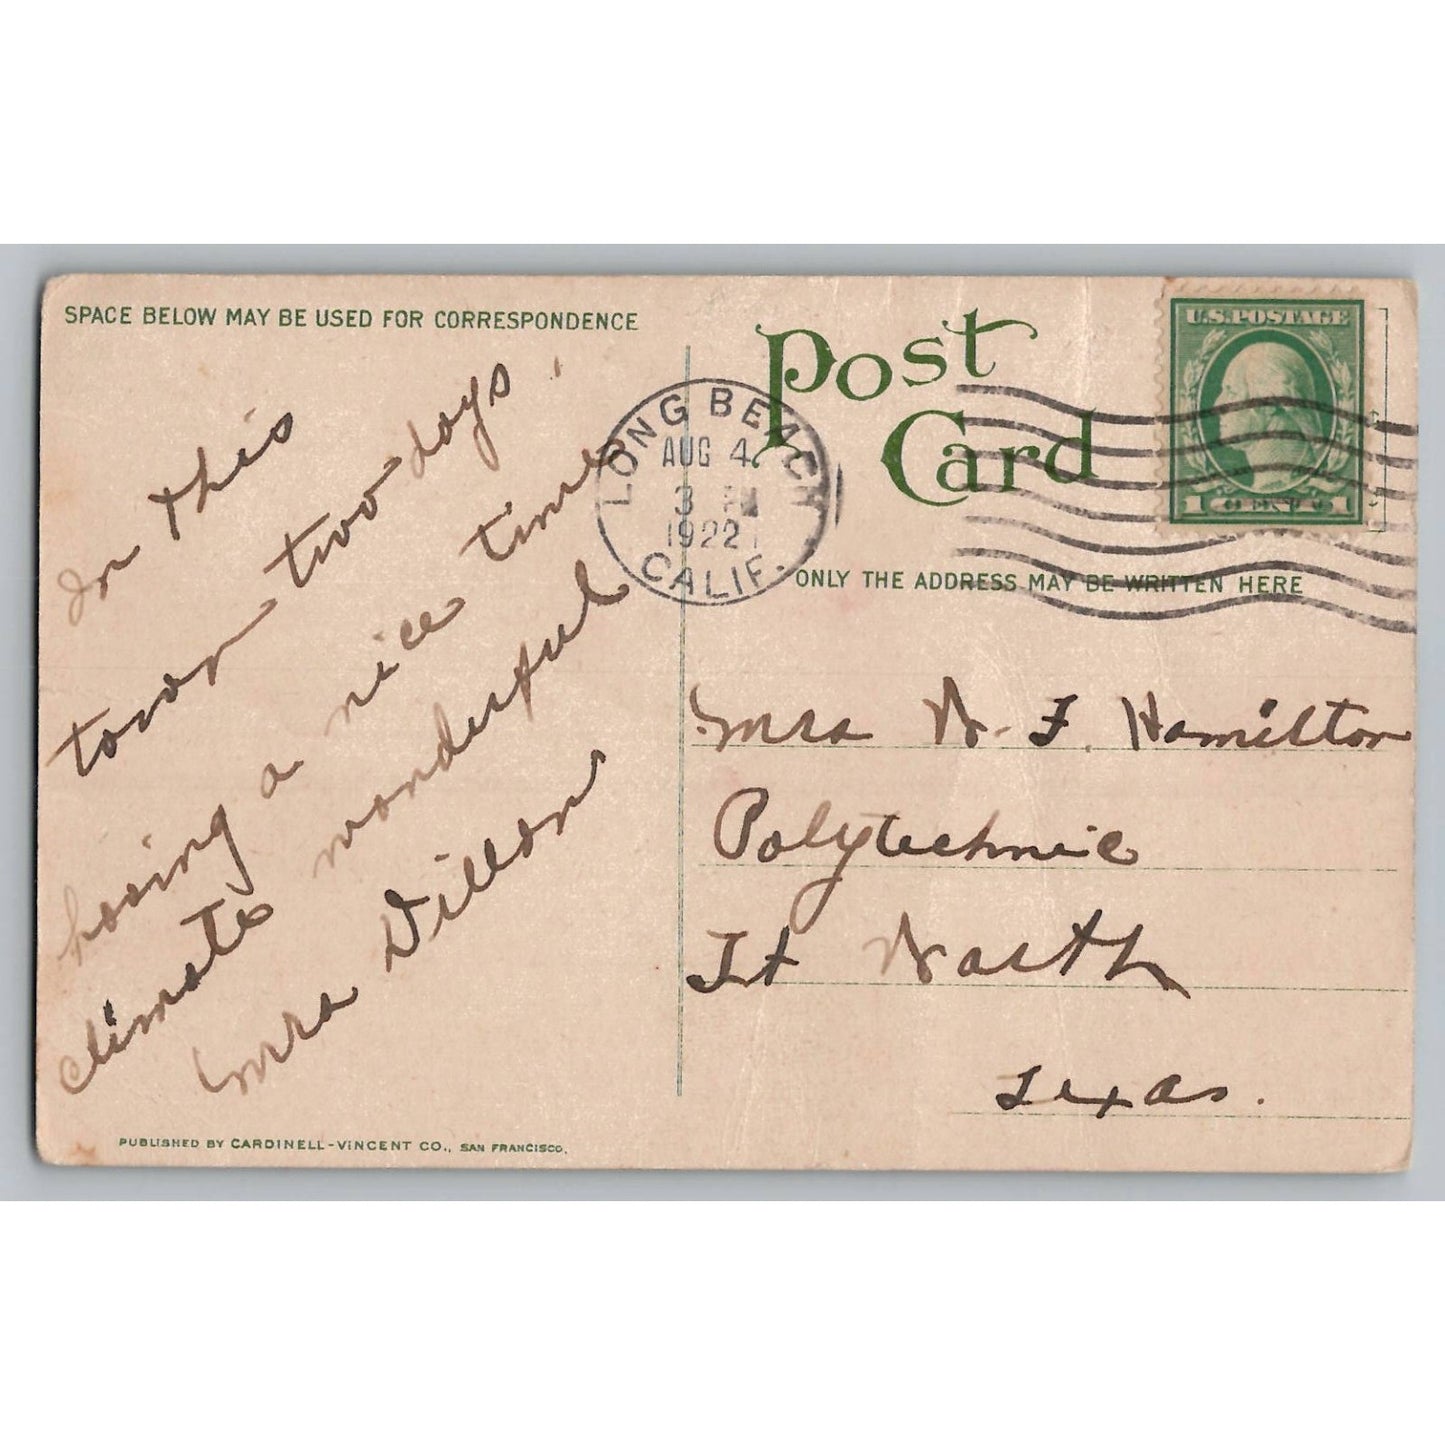 SPACE BELOW MAY BE USED FOR CORRESPONDENCE
In this
town two days.
having a nice time
climate wonderful
Mrs Dillon
PUBLISHED BY CARDINELL-VINCENT CO., SAN FRANCISCO.
Post
Card
U.S. POSTAGE
1 CENT 1
LONG BEACH
AUG 4
3 PM
1922
CALIF.
ONLY THE ADDRESS MAY BE WRITTEN HERE
Mrs W. F. Hamilton
Polytechnic
Ft Worth
Texas.